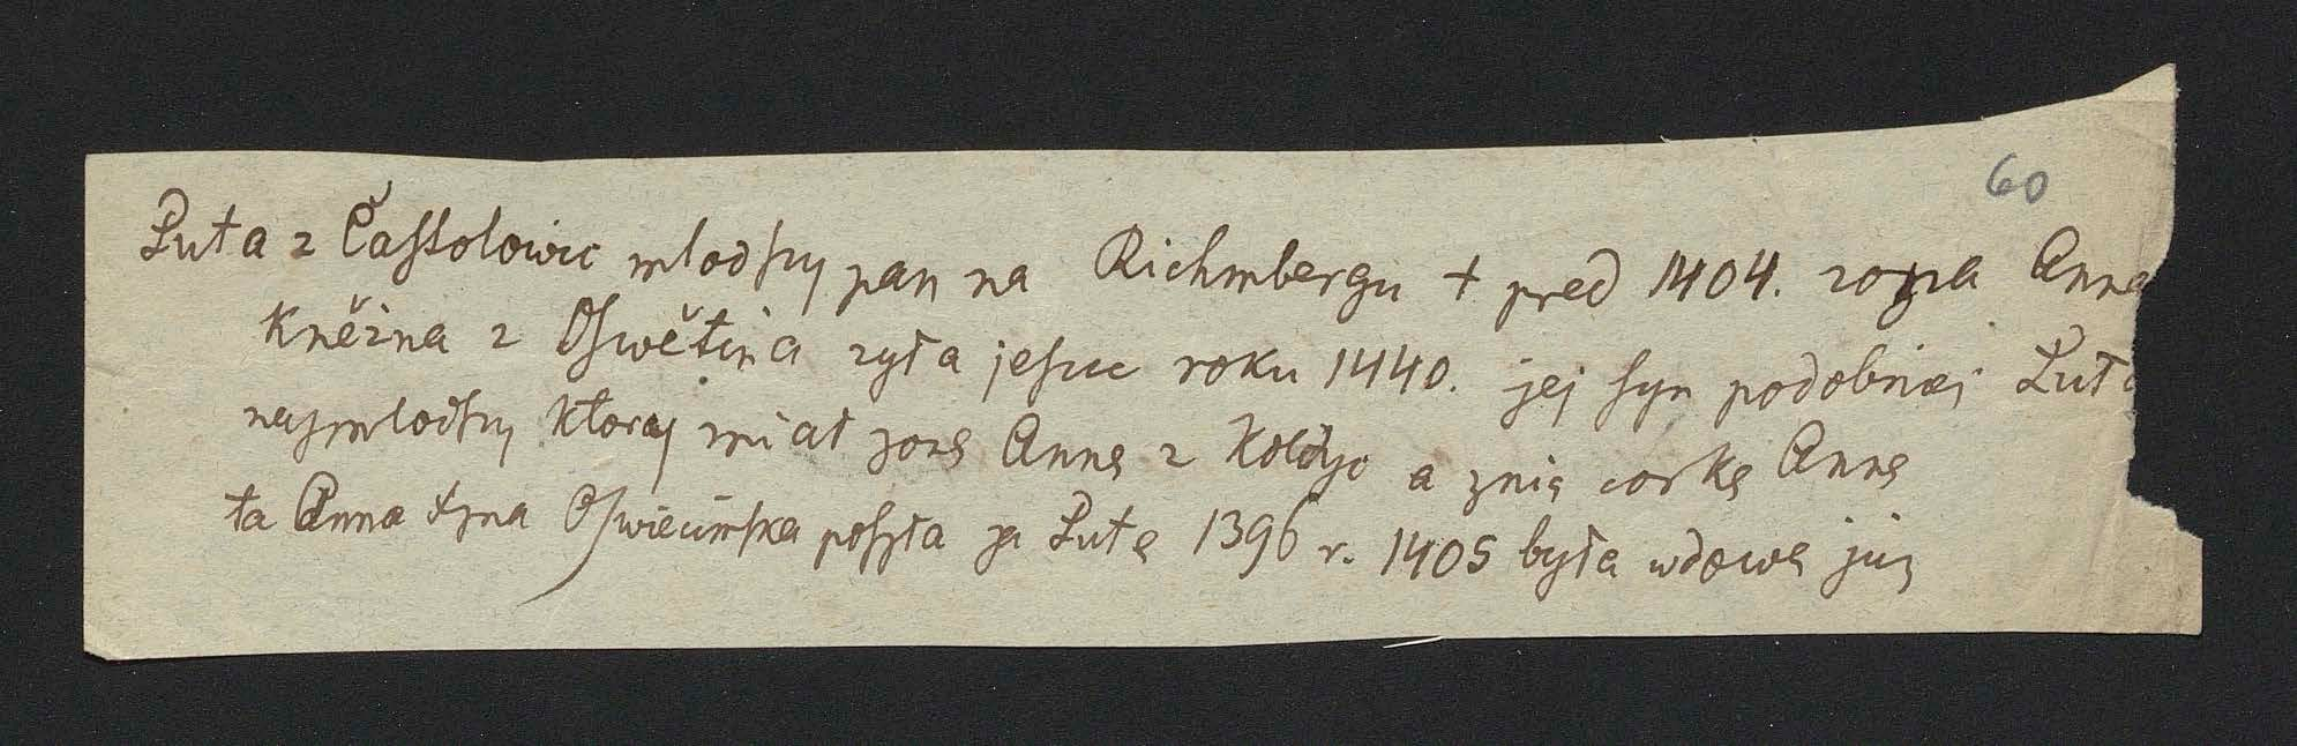 60
Puta z Častolowic mlodszy pan na Richmbergu + pred 1404. zona Anna
Kněžna z Oswětina zyła jeszcze roku 1440. jej syn podobniej Puta
najmlodszy ktoraj miał zonę Annę z Koldyc a znią corkę Annę
ta Anna Oswiecimska poszła za Putę 1396 r. 1405 była wdową juz